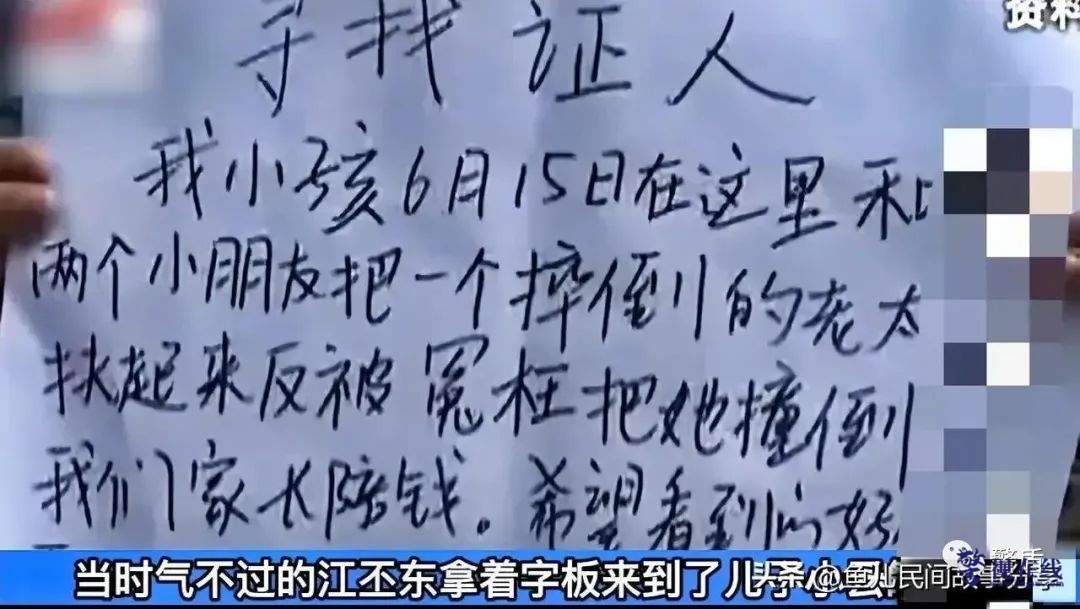 资料
寻找证人
我小孩6月15日在这里和
两个小朋友把一个摔倒的老太
扶起来反被冤枉把她撞倒
我们家长陪钱。希望看到的好
当时气不过的江丕东拿着字板来到了儿
头条@鱼儿民间故事分享